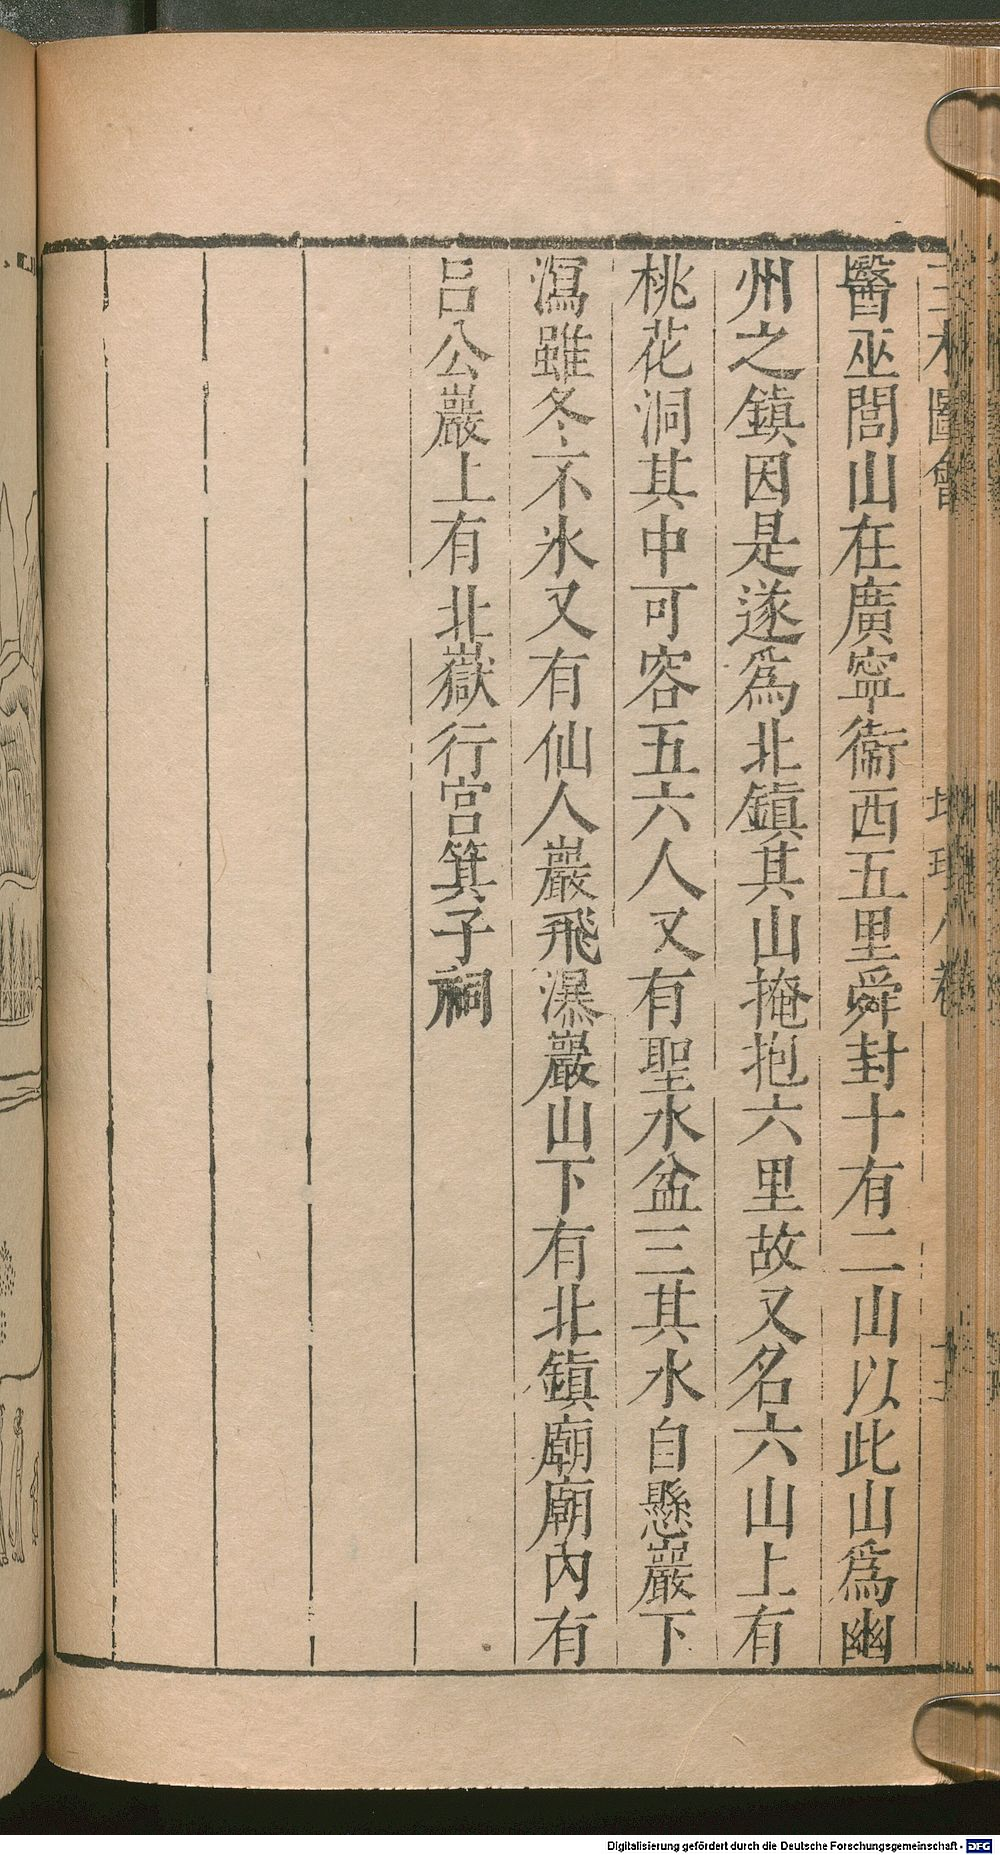 三才圖會 地理八卷
醫巫閭山在廣寧衞西五里舜封十有二山以此山爲幽
州之鎮因是遂爲北鎮其山掩抱六里故又名六山上有
桃花洞其中可容五六人又有聖水盆三其水自懸巖下
瀉雖冬不氷又有仙人巖飛瀑巖山下有北鎮廟廟內有
呂公巖上有北嶽行宮箕子祠
Digitalisierung gefördert durch die Deutsche Forschungsgemeinschaft - DFG